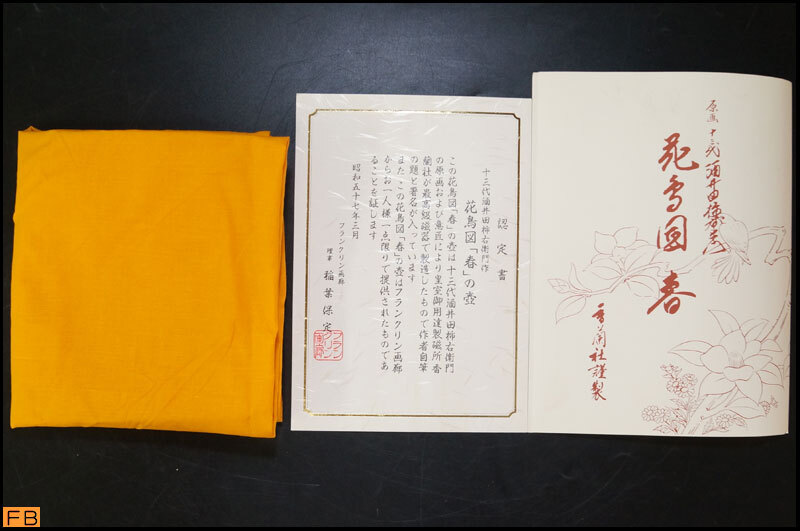 原画 十三代 酒井田柿右衛門
花鳥図 春
香蘭社謹製
認定書
十三代酒井田柿右衛門作
花鳥図「春」の壺
この花鳥図「春」の壺は十三代酒井田柿右衛門
の原画および意匠により皇室御用達製磁所香
蘭社が最高級磁器で製造したもので作者自筆
の題と署名が入っています
またこの花鳥図「春」の壺はフランクリン画廊
からお一人様一点限りで提供されたものであ
ることを証します
昭和五十七年三月
フランクリン画廊
理事 稲葉保定
フランクリン画廊
FB